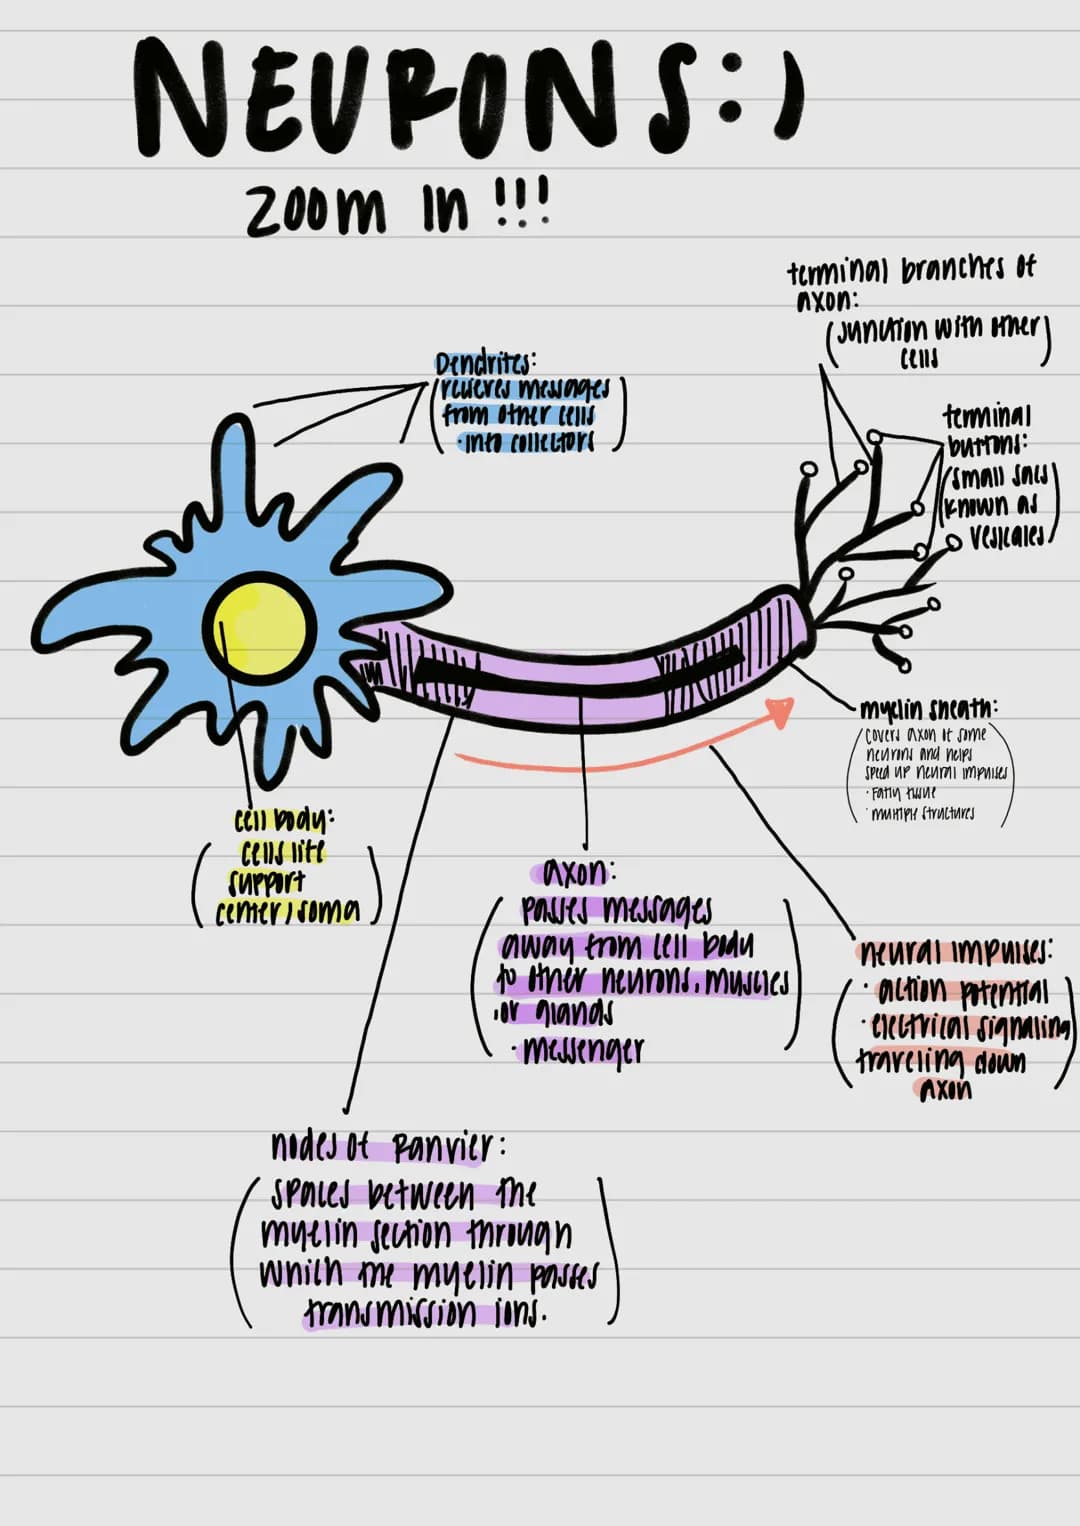 NEURONS:)
zoom in !!!
terminal branches of
axon:
(junction with other)
cells
Dendrites:
(recieves messages
from other cells
·info collectors)
terminal
buttons:
(small sacs
known as
vesicales)
myelin sheath:
(covers axon of some
neurons and helps
speed up neural impulses
· Fatty tissue
· multiple structures)
cell body:
(cells life
support
center/soma)
axon:
(passes messages
away from cell body
to other neurons, muscles
,or glands
·messenger)
neural impulses:
(· action potential
· electrical signaling
traveling down
axon)
nodes of Ranvier:
(spaces between the
myelin section through
which the myelin passes
transmission ions.)